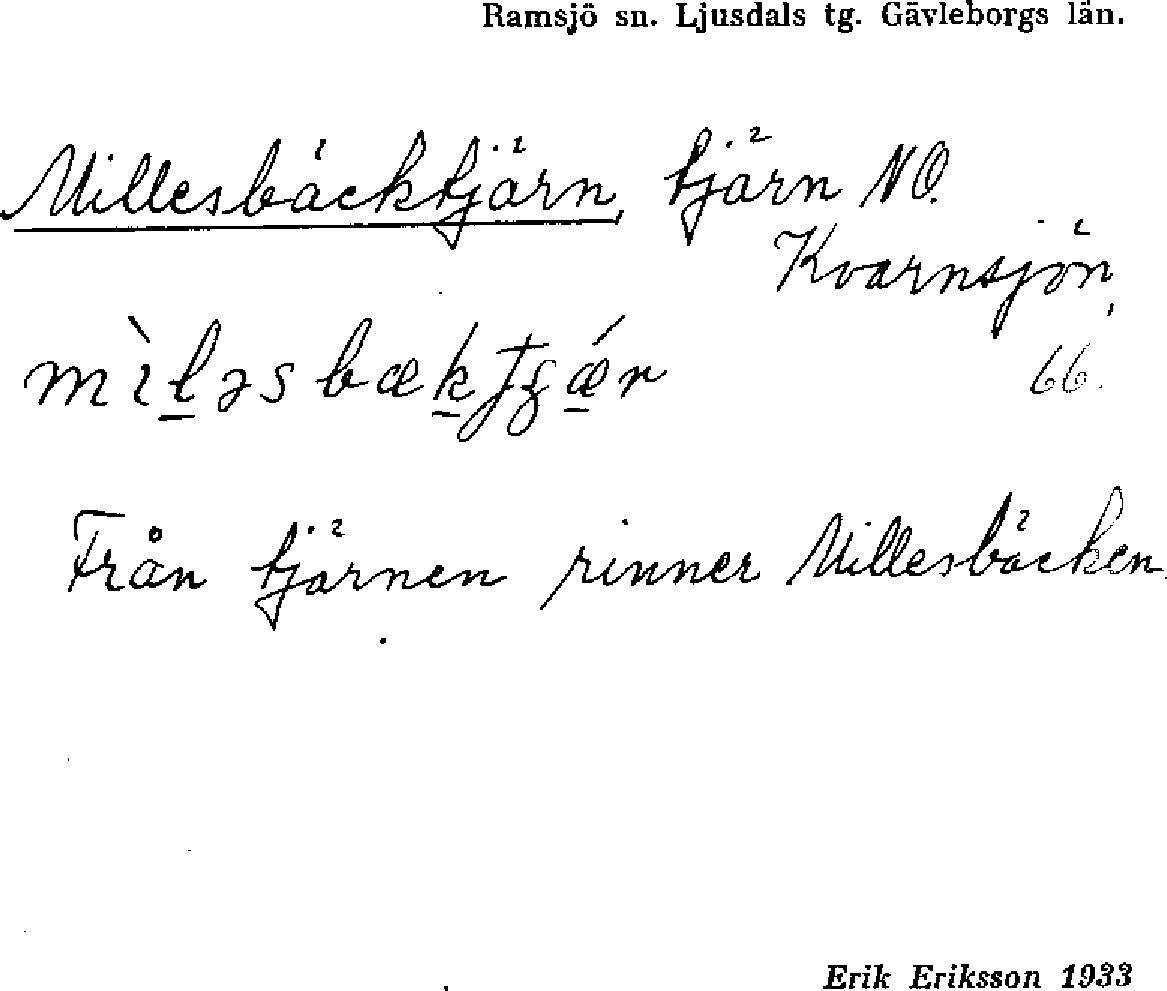 Ramsjö sn. Ljusdals tg. Gävleborgs län.
Millesbäcktjärn, tjärn NO.
Kvarnsjön,
66.
Från tjärnen rinner Millesbäcken.
Erik Eriksson 1933